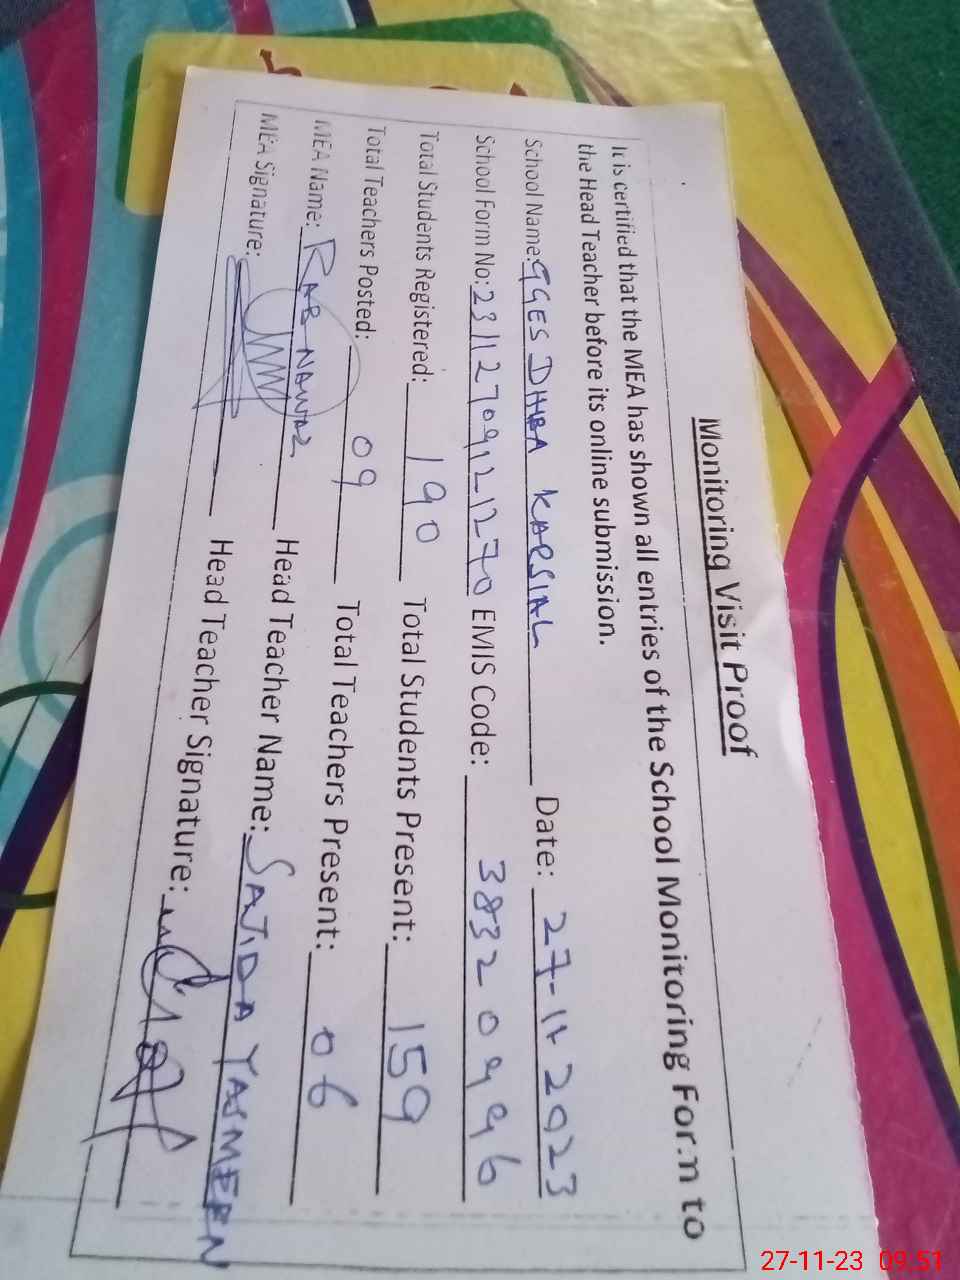 Monitoring Visit Proof
It is certified that the MEA has shown all entries of the School Monitoring Form to
the Head Teacher before its online submission.
School Name: GGES DHBA KARSIAL Date: 27-11-2023
School Form No: 23112709121270 EMIS Code: 38320496
Total Students Registered: 190 Total Students Present: 159
Total Teachers Posted: 09 Total Teachers Present: 06
MEA Name: RAB NAWAZ Head Teacher Name: SAJIDA YASMEEN
MEA Signature: Head Teacher Signature:
27-11-23 09:51